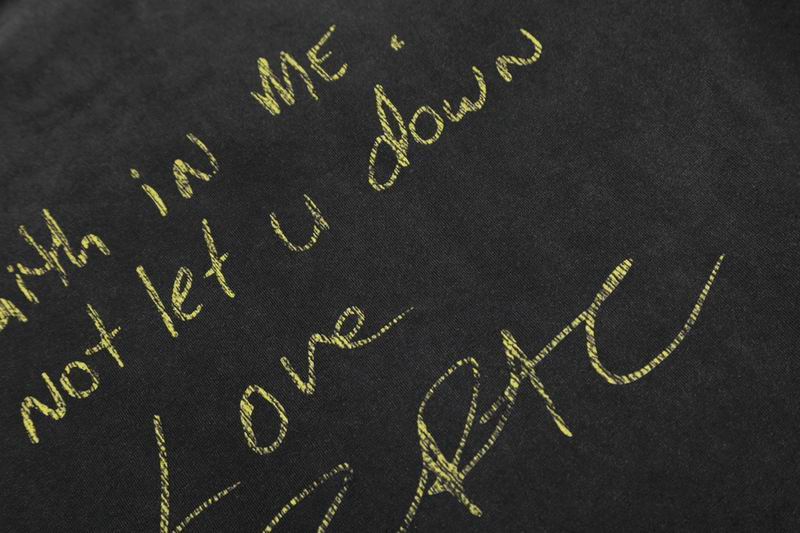 in ME.
not let u down
Love